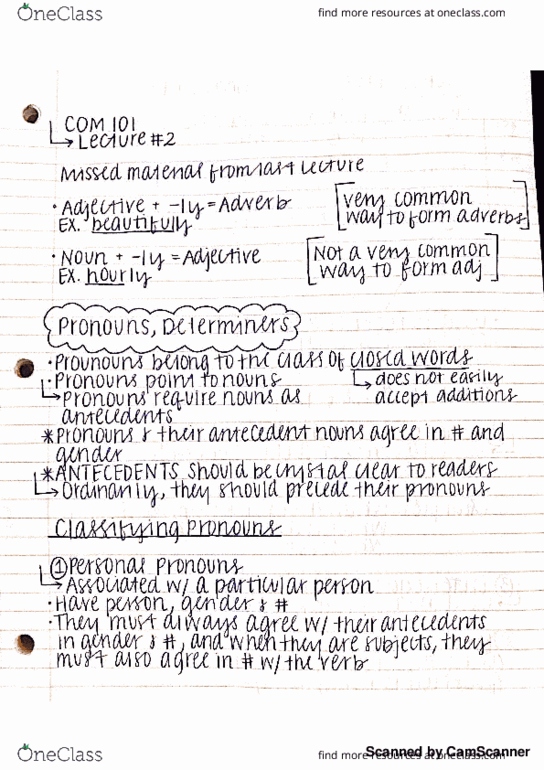 OneClass
find more resources at oneclass.com
COM 101
Lecture #2
Missed material from last lecture
· Adjective + -ly = Adverb
EX. beautifully
[very common
way to form adverbs]
· Noun + -ly = Adjective
EX. hourly
[Not a very common
way to form adj]
Pronouns, Determiners
· Prounouns belong to the class of closed words
· Pronouns point to nouns
does not easily
accept additions
Pronouns require nouns as
antecedents
*Pronouns & their antecedent nouns agree in # and
gender
*ANTECEDENTS should be crystal clear to readers
Ordinarily, they should precede their pronouns
Classifying Pronouns
① Personal Pronouns
Associated w/ a particular person
· Have person, gender & #
· They must always agree w/ their antecedents
in gender & #, and when they are subjects, they
must also agree in # w/ the verb
OneClass
find more resources at oneclass.com
Scanned by CamScanner